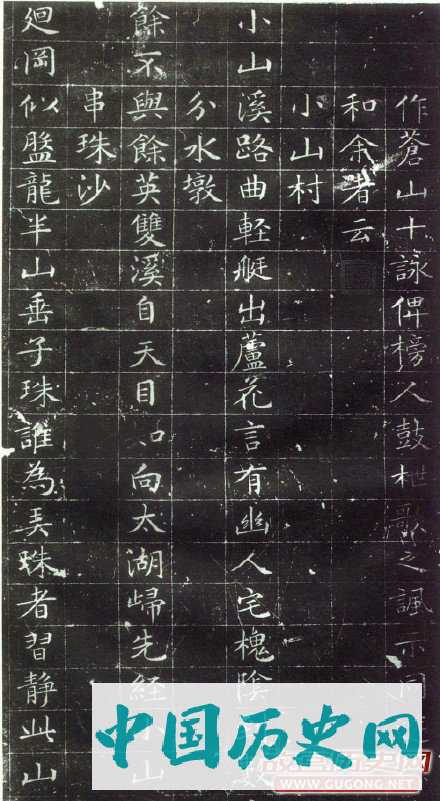 作蒼山十詠俾榜人鼓枻歌之諷示同
和余者云
小山村
小山溪路曲軽艇出蘆花言有幽人宅槐陰
分水墩
餘不與餘英雙溪自天目 向大湖歸先経小山
串珠沙
廻岡似盤龍半山垂子珠誰為弄珠者習靜此山
中国历史网
WWW.GUGONG.NET